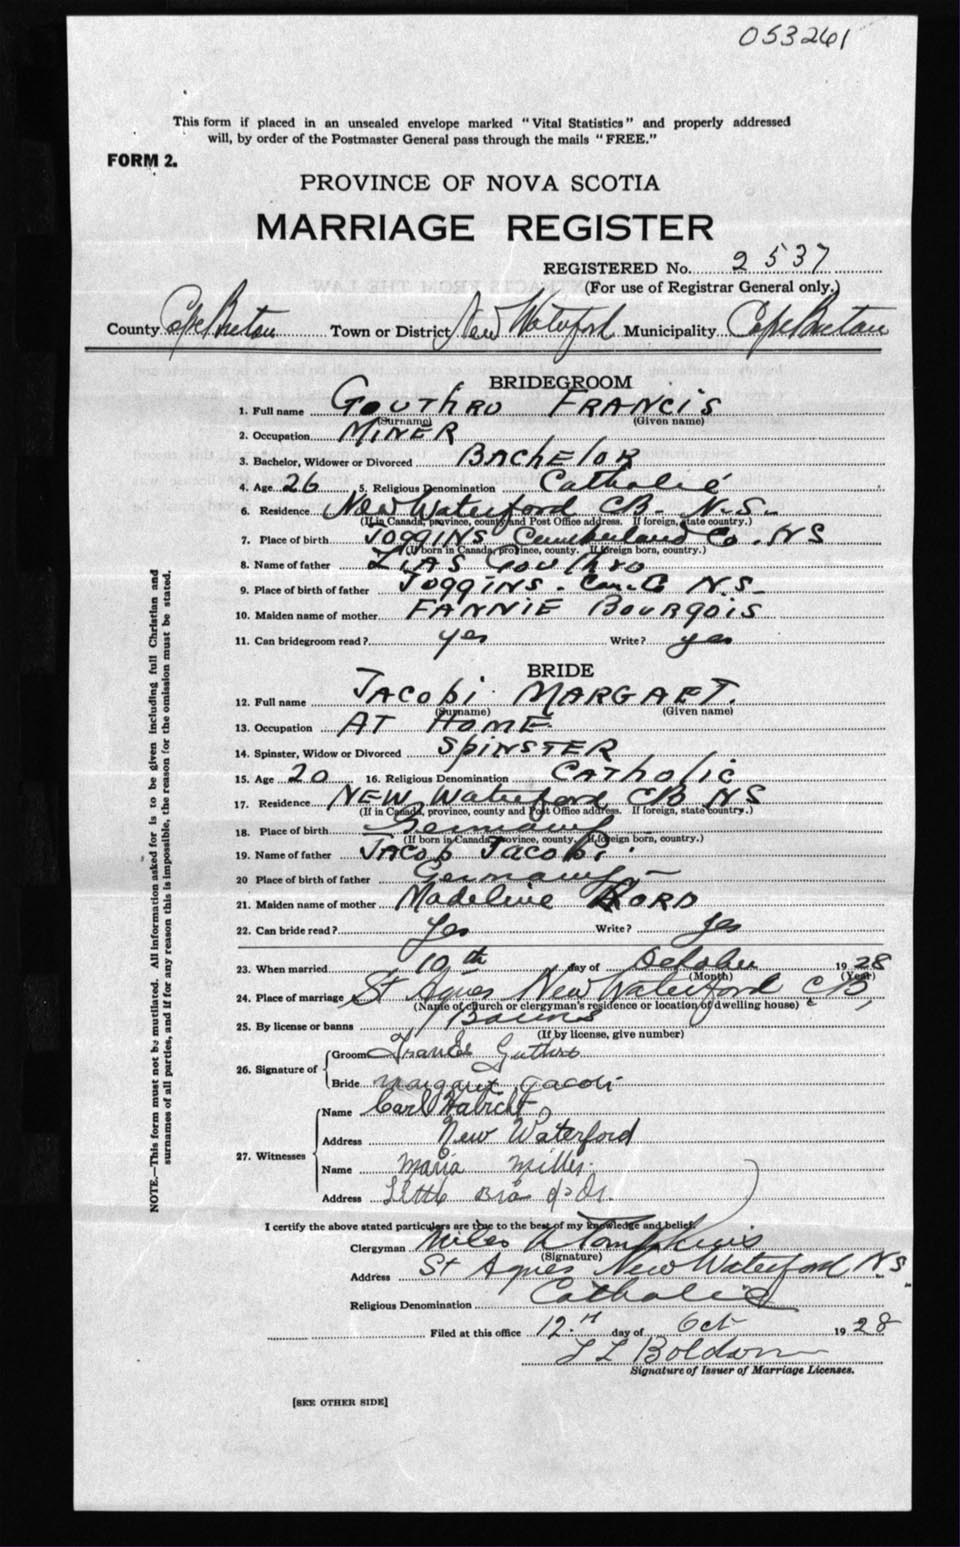 053261
This form if placed in an unsealed envelope marked "Vital Statistics" and properly addressed
will, by order of the Postmaster General pass through the mails "FREE."
FORM 2.
PROVINCE OF NOVA SCOTIA
MARRIAGE REGISTER
REGISTERED No. 2537
(For use of Registrar General only.)
County Cape Breton Town or District New Waterford Municipality Cape Breton
BRIDEGROOM
1. Full name GOUTHRO FRANCIS
(Surname) (Given name)
2. Occupation MINER
3. Bachelor, Widower or Divorced BAChElOR
4. Age 26 5. Religious Denomination Catholic
6. Residence New Waterford CB. N.S.
(If in Canada, province, county and Post Office address. If foreign, state country.)
7. Place of birth JOGGINS Cumberland Co. NS
(If born in Canada, province, county. If foreign born, country.)
8. Name of father GOUTHRO
9. Place of birth of father JOGGINS. N.S.
10. Maiden name of mother FANNIE BOURGOIS
11. Can bridegroom read? yes Write? yes
BRIDE
12. Full name JACObi MARGAET.
(Surname) (Given name)
13. Occupation AT HOME
14. Spinster, Widow or Divorced SPINSTER
15. Age 20 16. Religious Denomination CATholic
17. Residence NEW Waterford CB NS
(If in Canada, province, county and Post Office address. If foreign, state country.)
18. Place of birth Germany
(If born in Canada, province, county. If foreign born, country.)
19. Name of father JACOB JACObi.
20 Place of birth of father Germany
21. Maiden name of mother Madeline
22. Can bride read? Yes Write? yes
23. When married 10th day of October 1928
(Month) (Year)
24. Place of marriage St Agnes New Waterford CB
(Name of church or clergyman's residence or location of dwelling house)
25. By license or banns Banns
(If by license, give number)
26. Signature of
Groom Francis Guthro
Bride Margaret Jacobi
27. Witnesses
Name Carl Habicht
Address New Waterford
Name Maria Miller
Address Little Bras d'Or.
I certify the above stated particulars are true to the best of my knowledge and belief.
Clergyman Miles N Tompkins
(Signature)
Address St Agnes New Waterford N.S.
Religious Denomination Catholic
Filed at this office 12.th day of Oct 1928
Signature of Issuer of Marriage Licenses.
[SEE OTHER SIDE]
NOTE.—This form must not be mutilated. All information asked for is to be given including full Christian and
surnames of all parties, and if for any reason this is impossible, the reason for the omission must be stated.